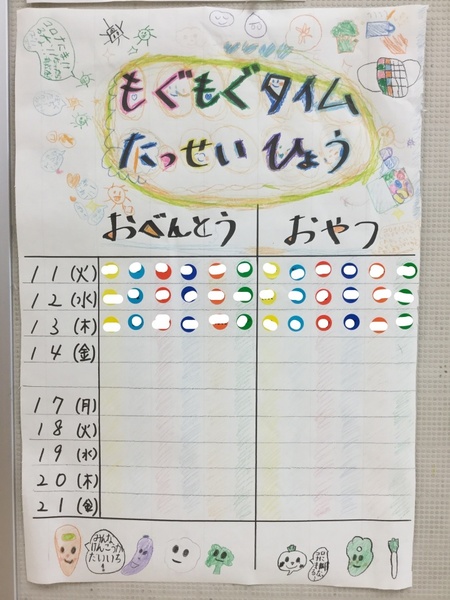 もぐもぐタイム
たっせいひょう
おべんとう おやつ
11(火)
12(水)
13(木)
14(金)
17(月)
18(火)
19(水)
20(木)
21(金)
みんな
けんこうが
だいいち